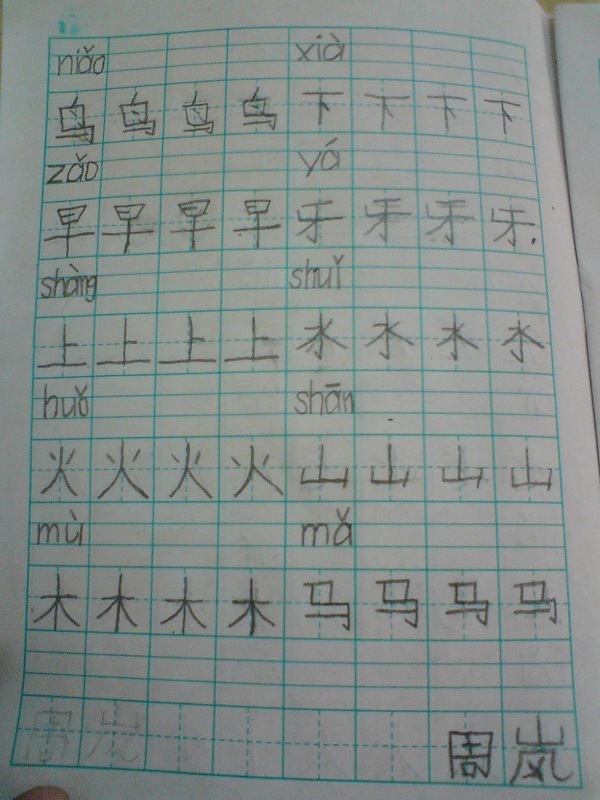 niǎo xià
鸟 鸟 鸟 鸟 下 下 下 下
zǎo yá
早 早 早 早 牙 牙 牙 牙
shàng shuǐ
上 上 上 上 水 水 水 水
huǒ shān
火 火 火 火 山 山 山 山
mù mǎ
木 木 木 木 马 马 马 马
周 岚 周 岚